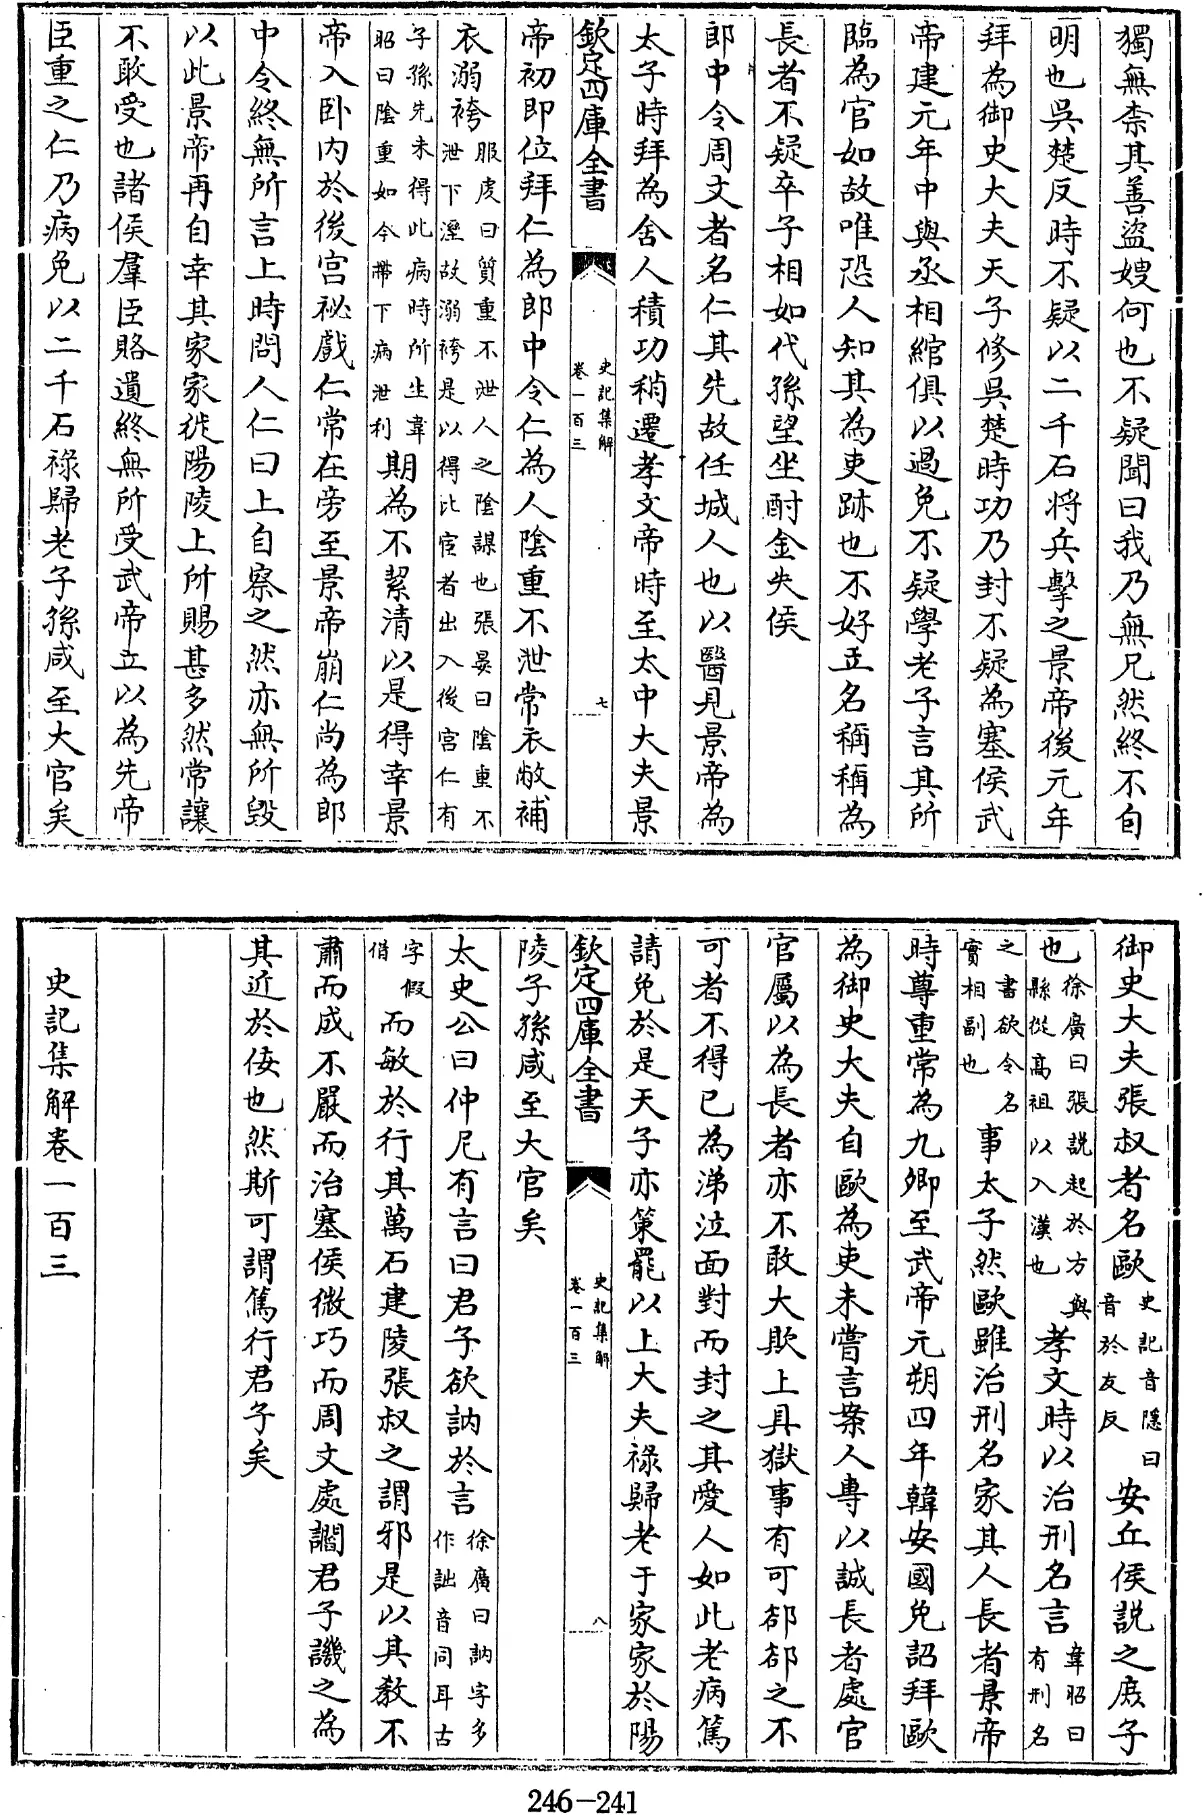 獨無柰其善盜嫂何也不疑聞曰我乃無兄然終不自
明也吳楚反時不疑以二千石將兵擊之景帝後元年
拜為御史大夫天子修吳楚時功乃封不疑為塞侯武
帝建元年中與丞相綰俱以過免不疑學老子言其所
臨為官如故唯恐人知其為吏跡也不好立名稱稱為
長者不疑卒子相如代孫望坐酎金失侯
郎中令周文者名仁其先故任城人也以醫見景帝為
太子時拜為舍人積功稍遷孝文帝時至太中大夫景
欽定四庫全書
史記集解
卷一百三
七
帝初即位拜仁為郎中令仁為人陰重不泄常衣敝補
衣溺袴服虔曰質重不泄人之陰謀也張晏曰陰重不
泄下溼故溺袴是以得比宦者出入後宮仁有
子孫先未得此病時所生韋
昭曰陰重如今帶下病泄利期為不絜清以是得幸景
帝入卧内於後宮祕戲仁常在旁至景帝崩仁尚為郎
中令終無所言上時問人仁曰上自察之然亦無所毀
以此景帝再自幸其家家徙陽陵上所賜甚多然常讓
不敢受也諸侯羣臣賂遺終無所受武帝立以為先帝
臣重之仁乃病免以二千石祿歸老子孫咸至大官矣
御史大夫張叔者名歐史記音隱曰
音於友反安丘侯說之庶子
也徐廣曰張說起於方與
縣從高祖以入漢也孝文時以治刑名言韋昭曰
有刑名
之書欲令名
實相副也事太子然歐雖治刑名家其人長者景帝
時尊重常為九卿至武帝元朔四年韓安國免詔拜歐
為御史大夫自歐為吏未嘗言案人專以誠長者處官
官屬以為長者亦不敢大欺上具獄事有可郤郤之不
可者不得已為涕泣面對而封之其愛人如此老病篤
請免於是天子亦策罷以上大夫祿歸老于家家於陽
欽定四庫全書
史記集解
卷一百三
八
陵子孫咸至大官矣
太史公曰仲尼有言曰君子欲訥於言徐廣曰訥字多
作詘音同耳古
字假
借而敏於行其萬石建陵張叔之謂邪是以其教不
肅而成不嚴而治塞侯微巧而周文處讇君子譏之為
其近於佞也然斯可謂篤行君子矣
史記集解卷一百三
246-241